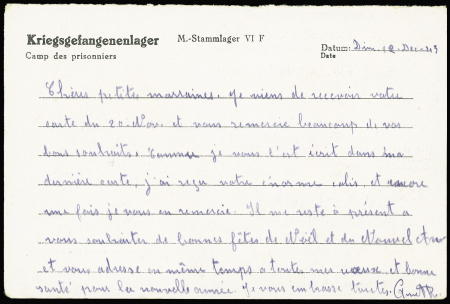 Kriegsgefangenenlager M.-Stammlager VI F
Camp des prisonniers
Datum: Dim. Dec. 43
Date
Chères petites marraines. Je viens de recevoir votre
carte du 20 Nov. et vous remercie beaucoup de vos
bons souhaits. Comme je vous l'ai écrit dans ma
dernière carte, j'ai reçu votre énorme colis, et encore
une fois je vous en remercie. Il me reste à présent a
vous souhaiter de bonnes fêtes de Noël et du Nouvel An
et vous adresse en même temps a toutes mes vœux et bonne
santé pour la nouvelle année. Je vous embrasse toutes.